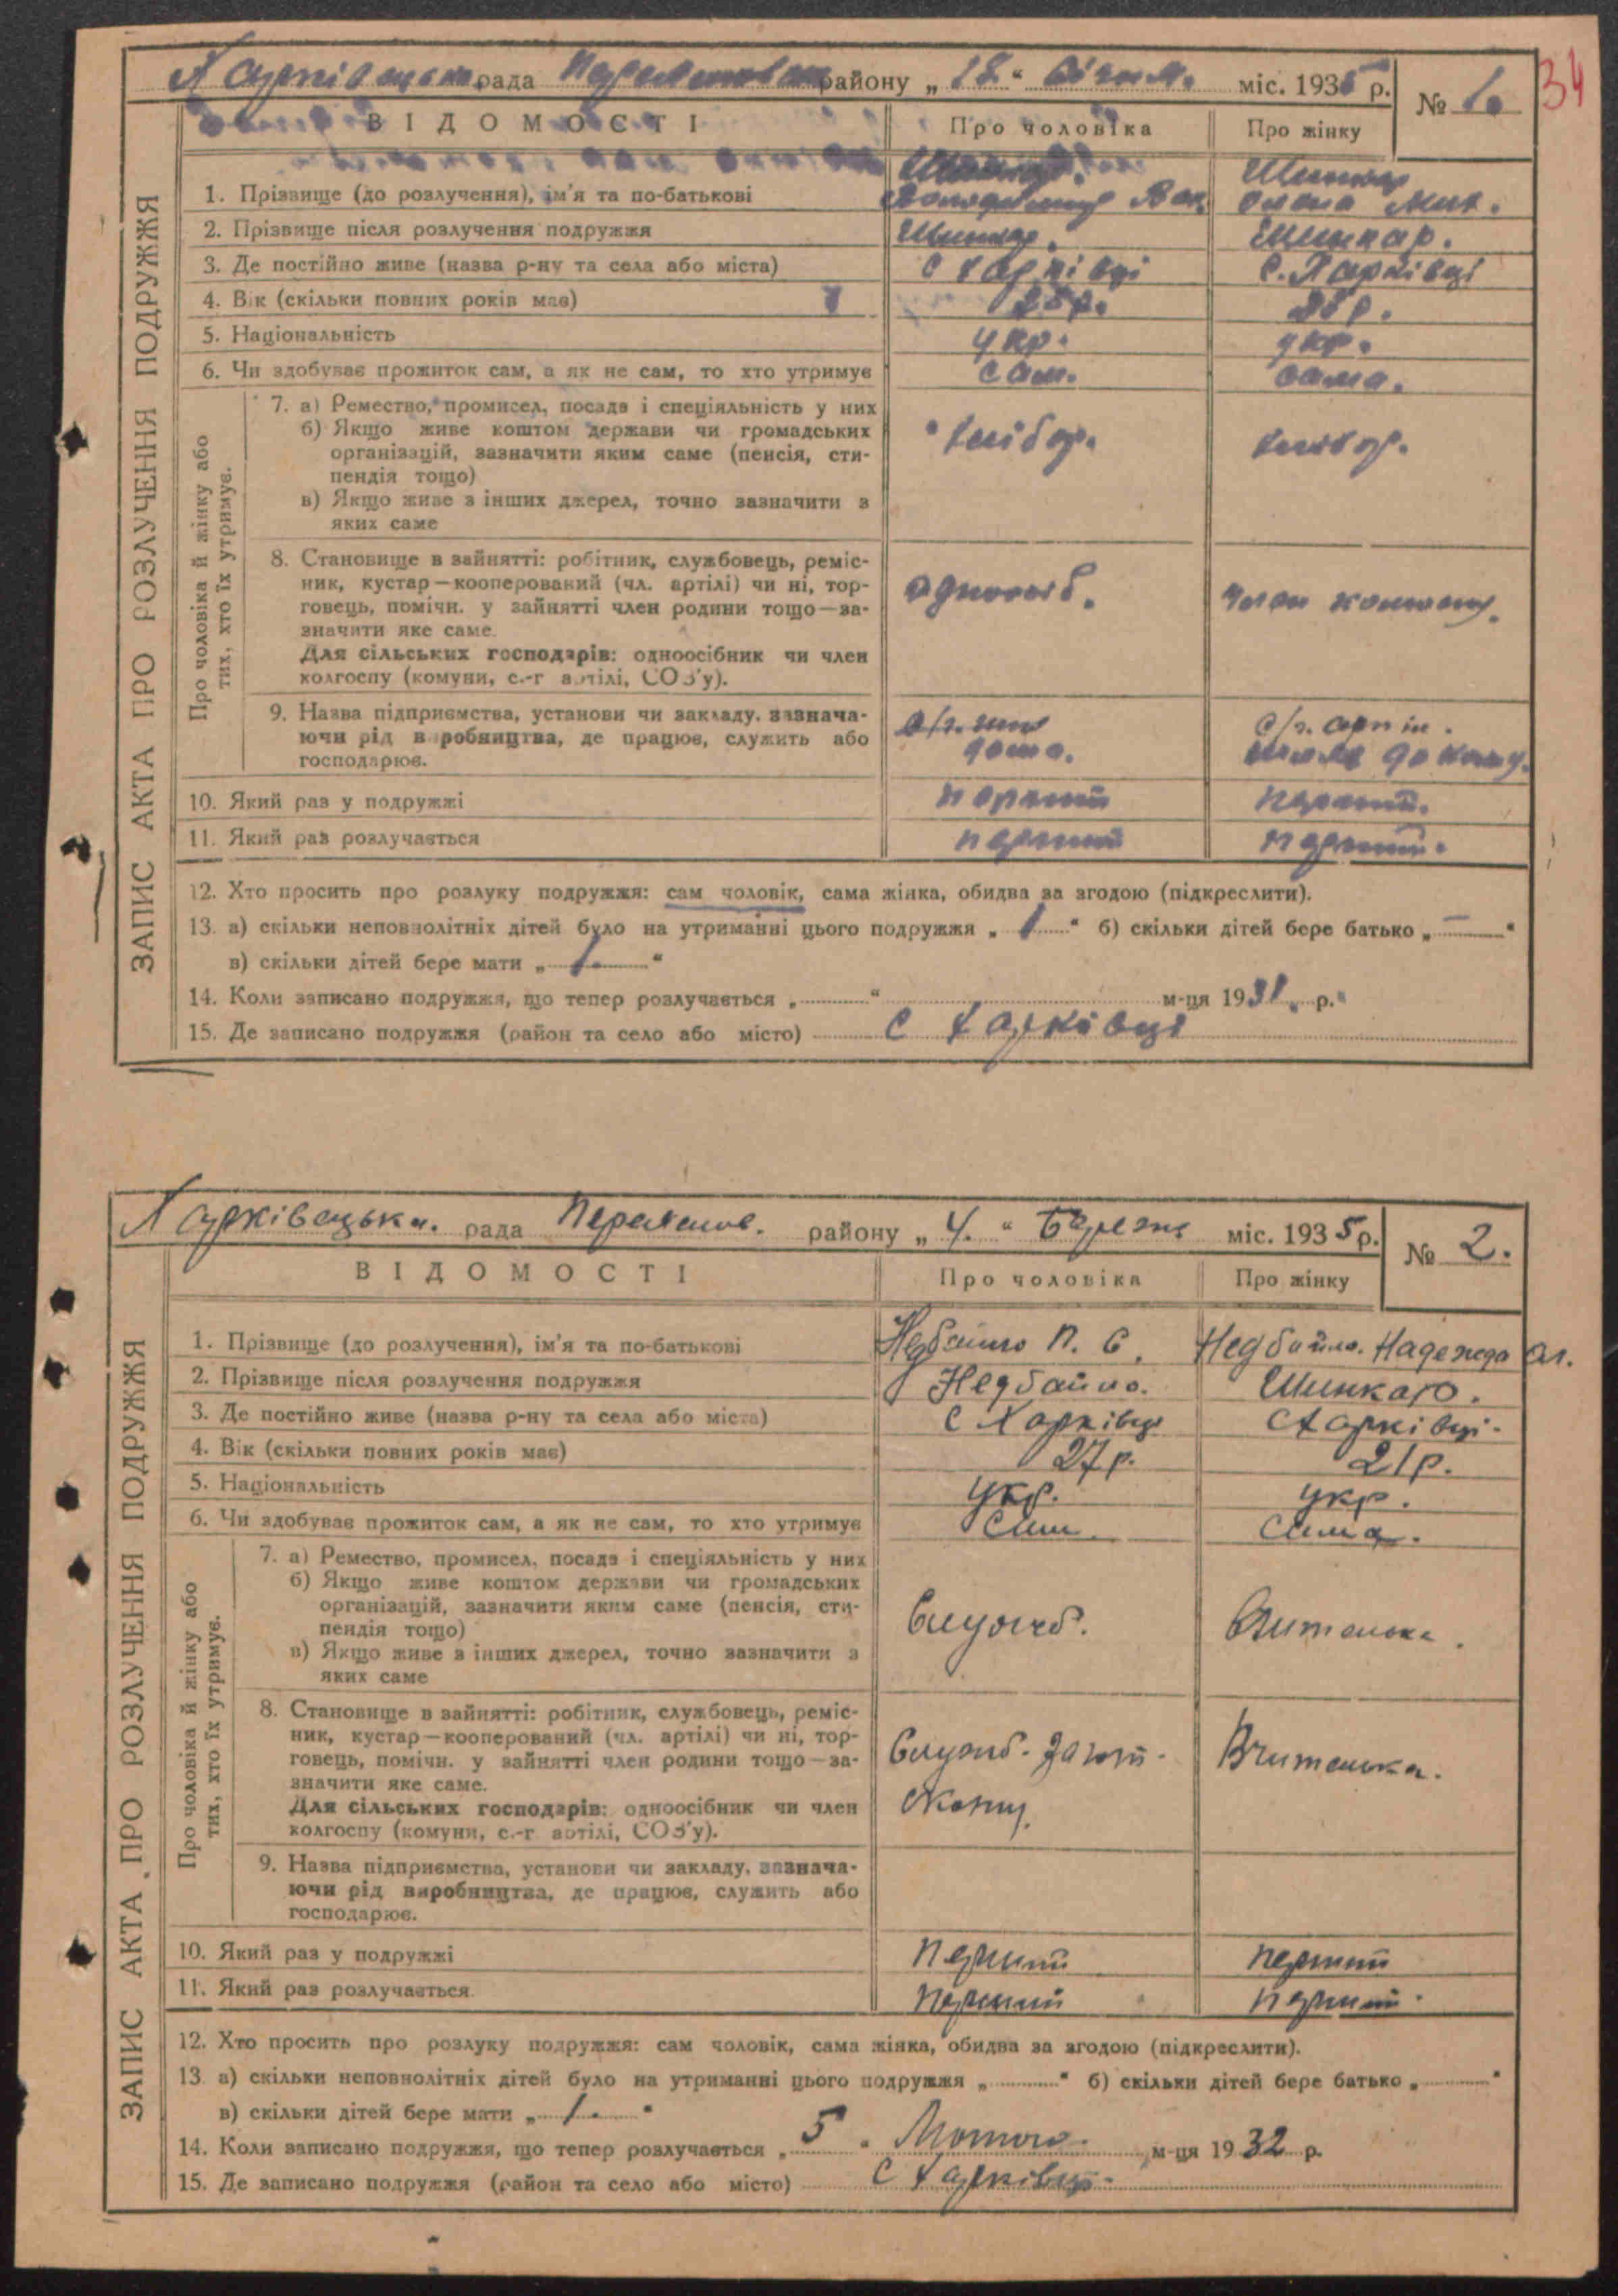 34
Харківецька рада районy „18.“ Січня. міс. 1935 р. № 1.
ВІДОМОСТІ Про чоловіка Про жінку
ЗАПИС АКТА ПРО РОЗЛУЧЕННЯ ПОДРУЖЖЯ
Шинкар. Шинкар
1. Прізвище (до розлучення), ім'я та по-батькові
2. Прізвище після розлучення подружжя Шинкар. Шинкар.
3. Де постійно живе (назва р-ну та села або міста) с Харківці с. Харківці
4. Вік (скільки повних років має) 28р. 28р.
5. Національність укр. укр.
6. Чи здобуває прожиток сам, а як не сам, то хто утримує сам. сама.
Про чоловіка й жінку або
тих, хто їх утримує.
7. а) Ремество, промисел, посада і спеціяльність у них
б) Якщо живе коштом держави чи громадських
організацій, зазначити яким саме (пенсія, сти-
пендія тощо)
в) Якщо живе з інших джерел, точно зазначити з
яких саме
хлібор. хлібор.
8. Становище в зайнятті: робітник, службовець, реміс-
ник, кустар—кооперований (чл. артілі) чи ні, тор-
говець, помічн. у зайнятті член родини тощо—за-
значити яке саме.
Для сільських господарів: одноосібник чи член
колгоспу (комуни, с.-г артілі, СОЗ'у).
одноосіб. член колгоспу.
9. Назва підприємства, установи чи закладу, зазнача-
ючи рід виробництва, де працює, служить або
господарює.
дома. с/г. артіл.
10. Який раз у подружжі перший перший.
11. Який раз розлучається перший перший.
12. Хто просить про розлуку подружжя: сам чоловік, сама жінка, обидва за згодою (підкреслити).
13. а) скільки неповнолітніх дітей було на утриманні цього подружжя „1“ б) скільки дітей бере батько „—“
в) скільки дітей бере мати „1.“
14. Коли записано подружжя, що тепер розлучається „ “ м-ця 1931. р.
15. Де записано подружжя (район та село або місто) с Харківці
Харківецька. рада районy „4.“ Березня міс. 1935 р. № 2.
ВІДОМОСТІ Про чоловіка Про жінку
ЗАПИС АКТА ПРО РОЗЛУЧЕННЯ ПОДРУЖЖЯ
1. Прізвище (до розлучення), ім'я та по-батькові Недбайло П. С. Недбайло. Надежда Ол.
2. Прізвище після розлучення подружжя Недбайло. Шинкар.
3. Де постійно живе (назва р-ну та села або міста) с Харківці с Харківці.
4. Вік (скільки повних років має) 27р. 21р.
5. Національність укр. укр.
6. Чи здобуває прожиток сам, а як не сам, то хто утримує сам. сама.
Про чоловіка й жінку або
тих, хто їх утримує.
7. а) Ремество, промисел, посада і спеціяльність у них
б) Якщо живе коштом держави чи громадських
організацій, зазначити яким саме (пенсія, сти-
пендія тощо)
в) Якщо живе з інших джерел, точно зазначити з
яких саме
Службов. Вчителька.
8. Становище в зайнятті: робітник, службовець, реміс-
ник, кустар—кооперований (чл. артілі) чи ні, тор-
говець, помічн. у зайнятті член родини тощо—за-
значити яке саме.
Для сільських господарів: одноосібник чи член
колгоспу (комуни, с.-г артілі, СОЗ'у).
Служб. Вчителька.
9. Назва підприємства, установи чи закладу, зазнача-
ючи рід виробництва, де працює, служить або
господарює.
10. Який раз у подружжі перший перший
11. Який раз розлучається перший перший.
12. Хто просить про розлуку подружжя: сам чоловік, сама жінка, обидва за згодою (підкреслити).
13. а) скільки неповнолітніх дітей було на утриманні цього подружжя „ “ б) скільки дітей бере батько „ “
в) скільки дітей бере мати „1.“
14. Коли записано подружжя, що тепер розлучається „5“ Лютого. м-ця 1932 р.
15. Де записано подружжя (район та село або місто) с Харківці.